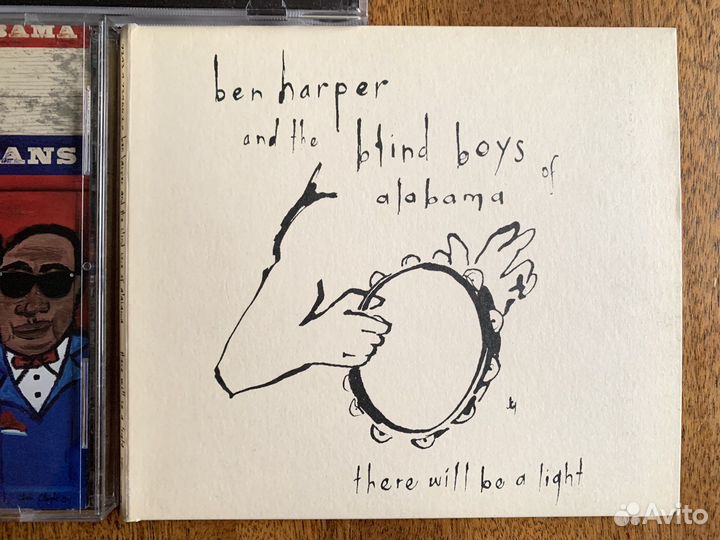 BAMA
ANS
ben harper
and the blind boys of
alabama
there will be a light
Avito